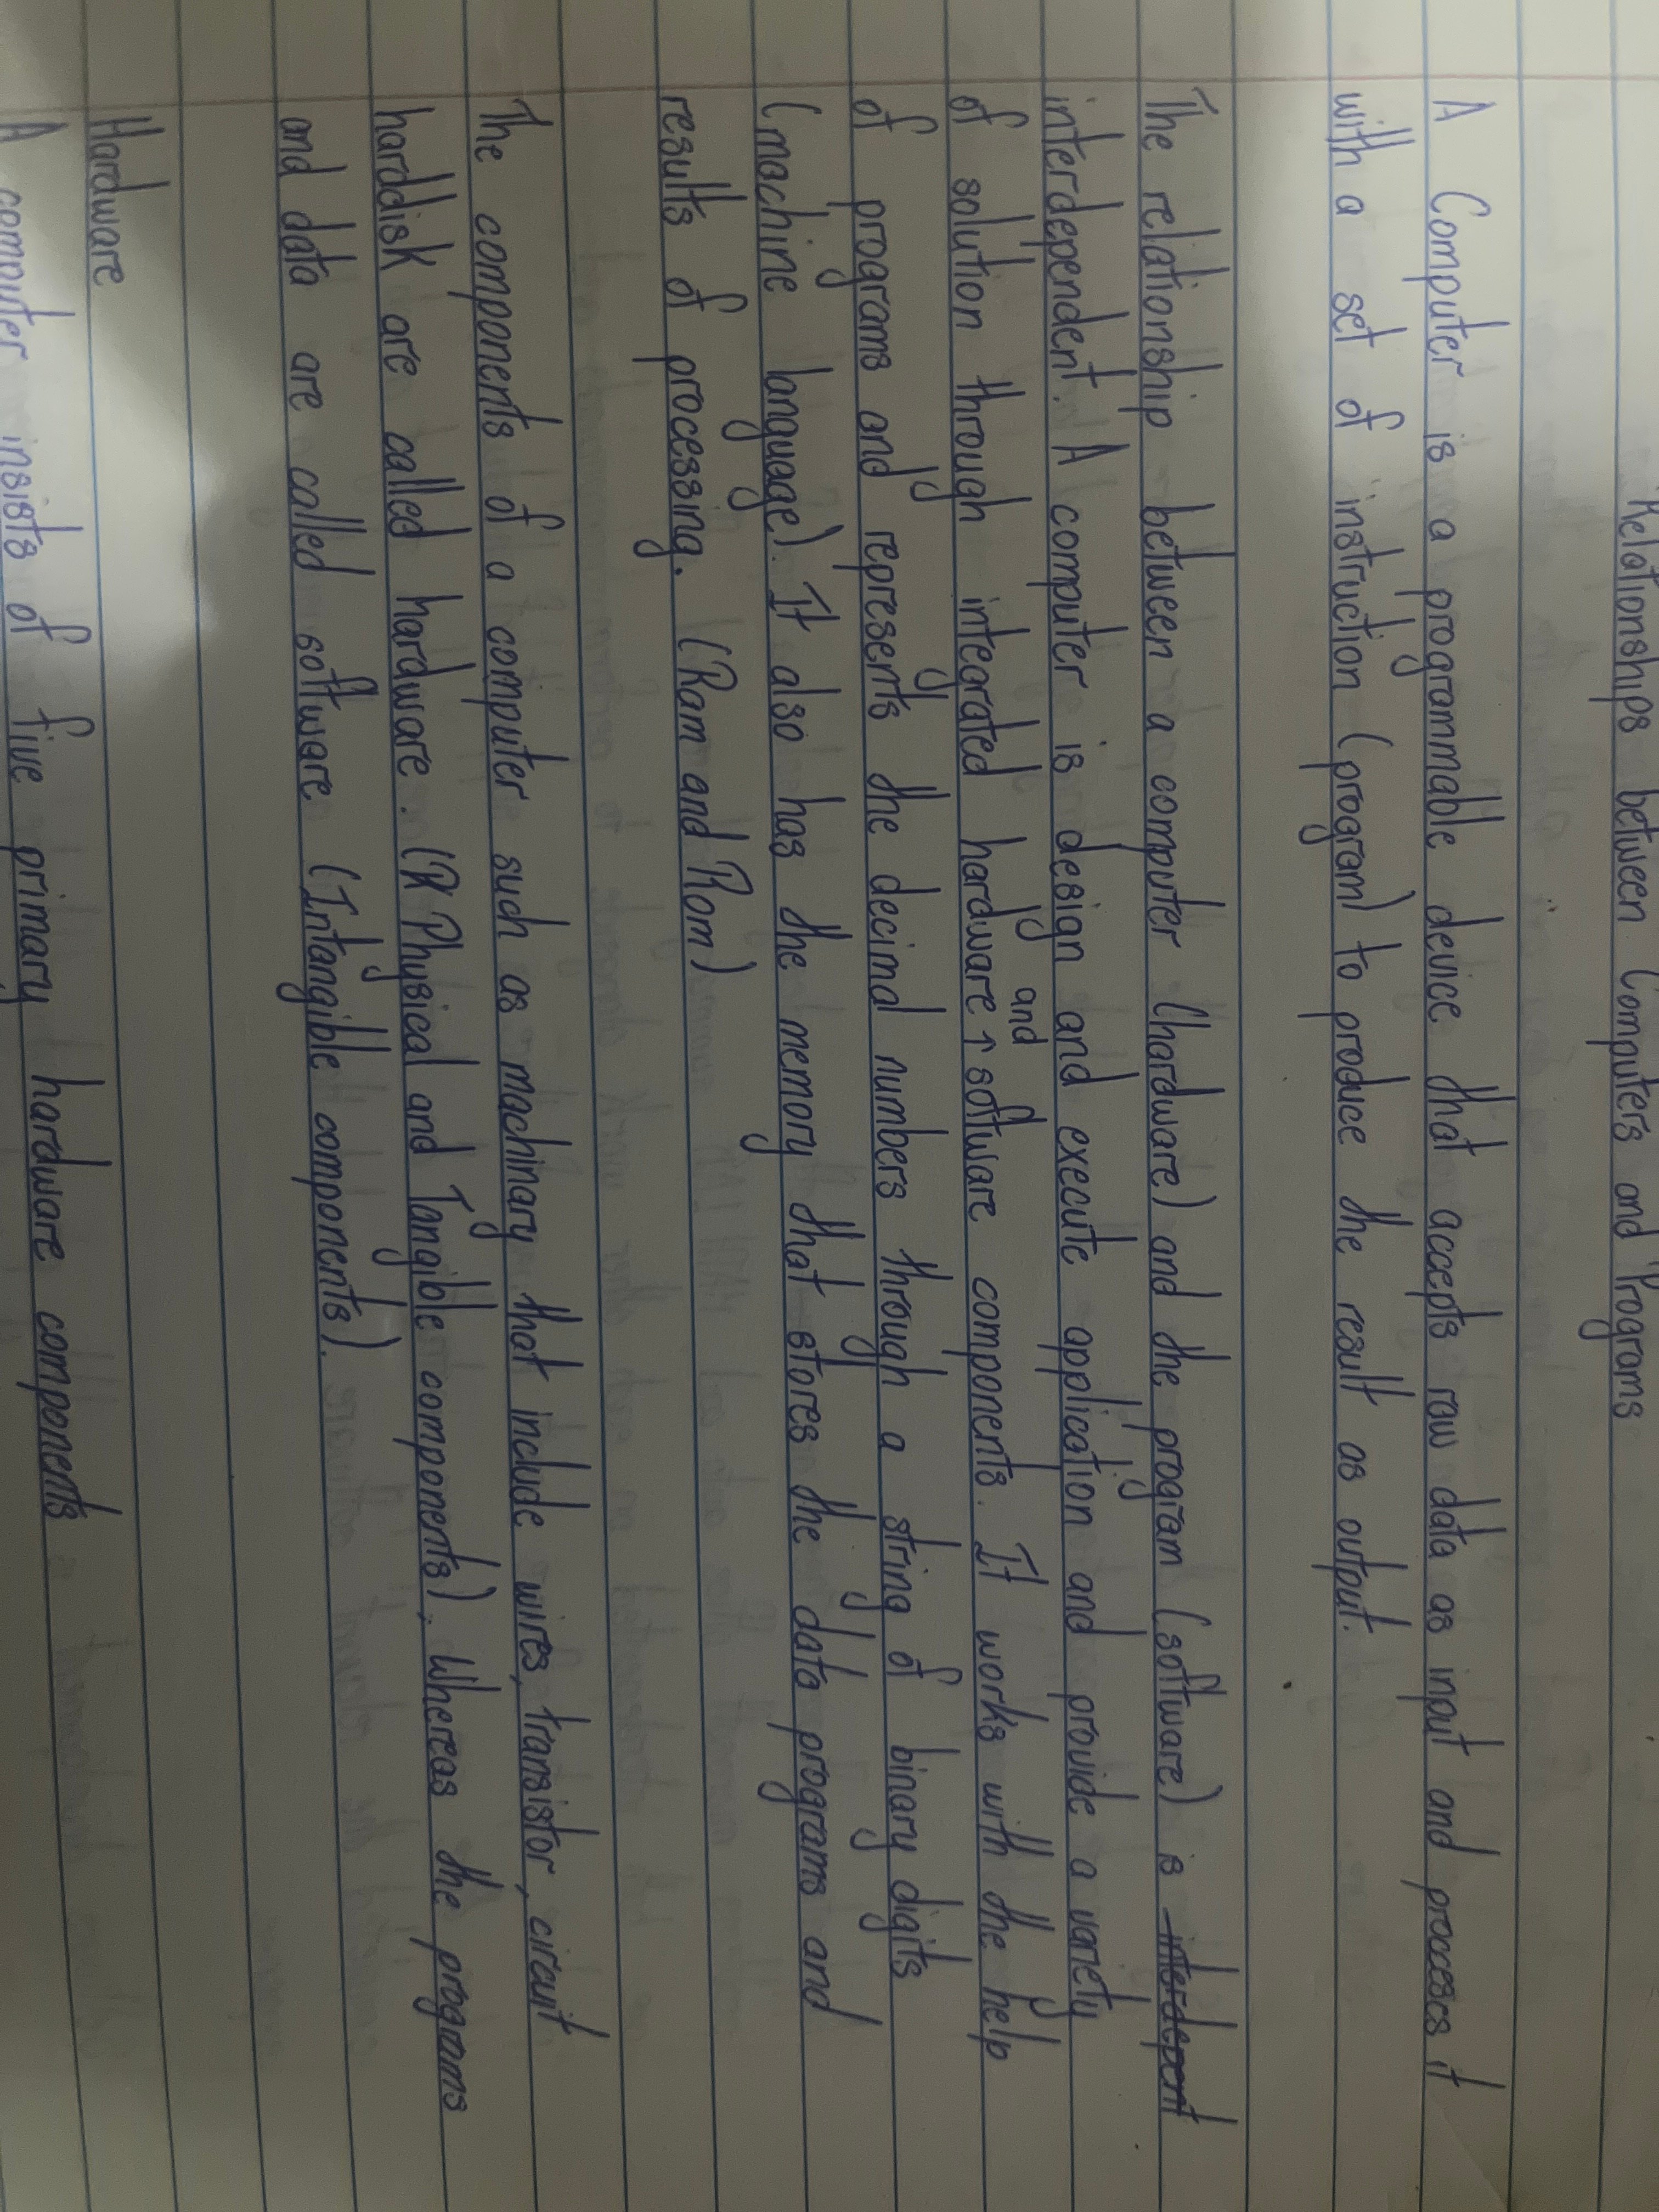 Relationships between Computers and Programs
A Computer is a programmable device that accepts raw data as input and processes it
with a set of instruction (program) to produce the result as output.
The relationship between a computer (hardware) and the program (software) is interdepent
interdependent. A computer is design and execute application and provide a variety
of solution through integrated hardware ↑ and software components. It works with the help
of programs and represents the decimal numbers through a string of binary digits
(machine language). It also has the memory that stores the data programs and
results of processing. (Ram and Rom)
The components of a computer such as machinary that include wires, transistor, circuit
harddisk are called hardware. (Physical and Tangible components). Whereas the programs
and data are called software (Intangible components).
Hardware
A computer insists of five primary hardware components